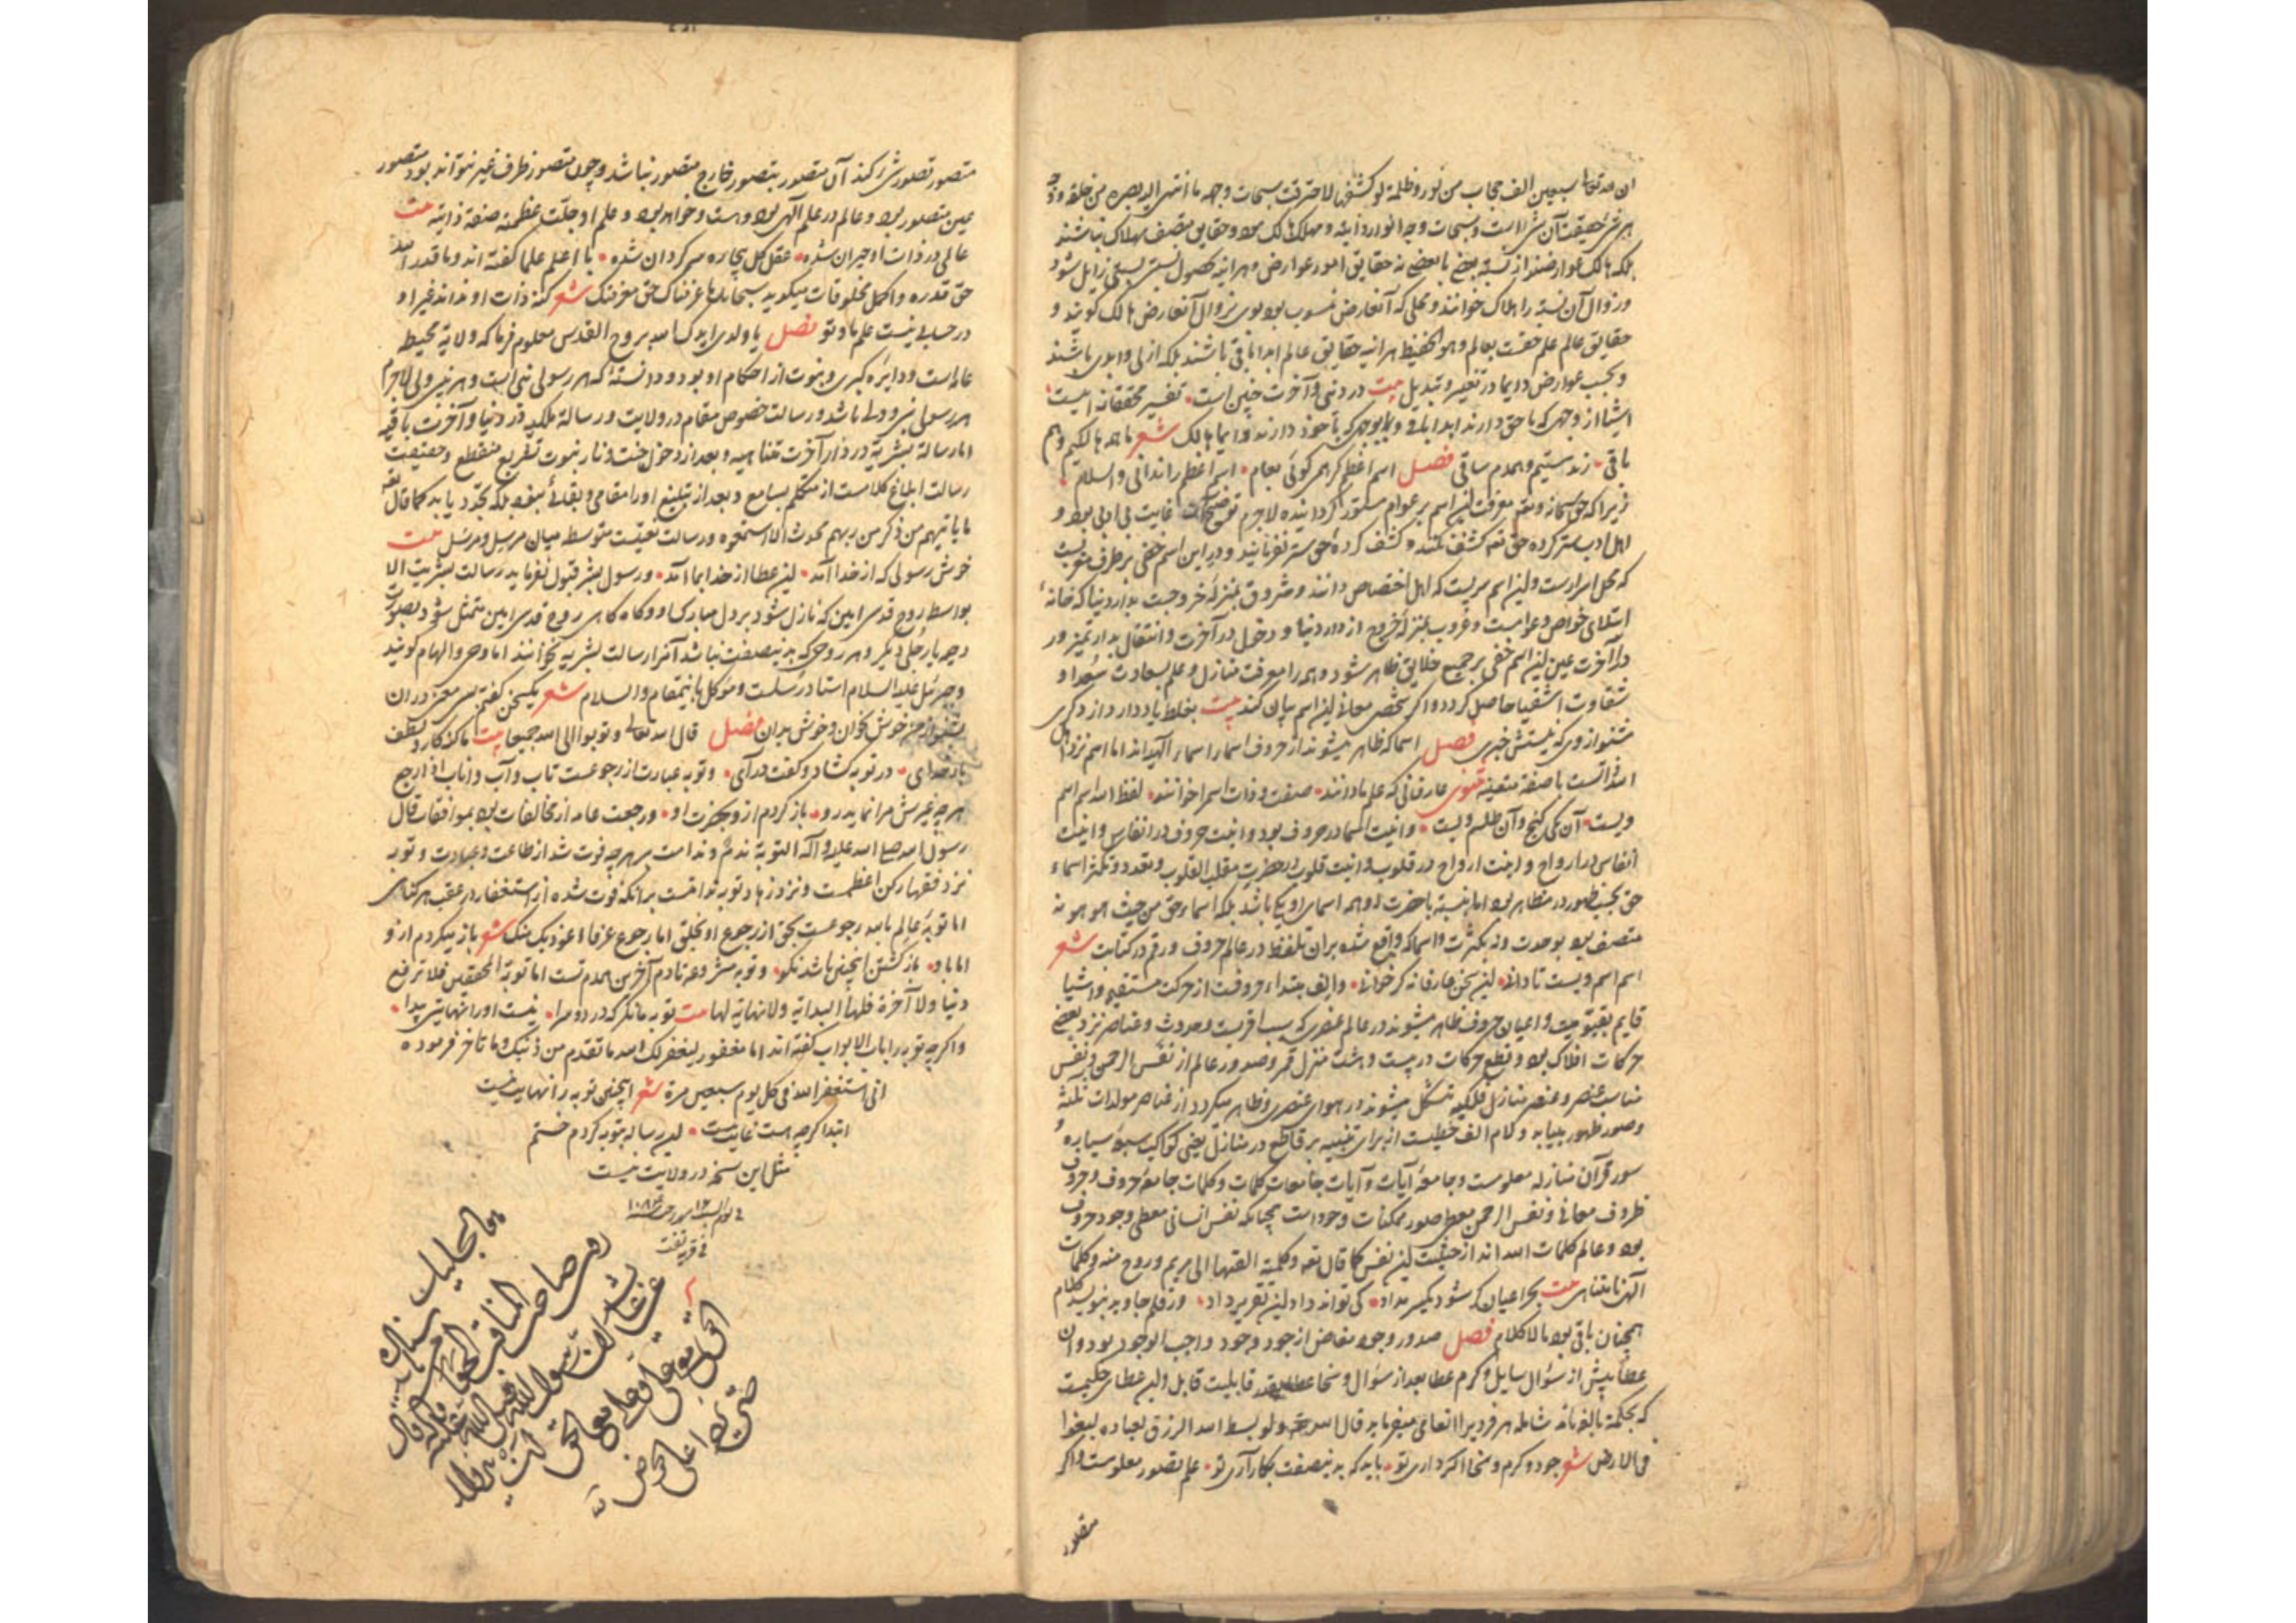 ان لله تعالی سبعین الف حجاب من نور و ظلمة لو کشفها لاحترقت سبحات وجهه ما انتهی الیه بصره من خلقه و وجه
هر شئ حقیقت آن شئ است و سبحات وجه انوار ذاتیه و مهلک هالک بود و حقایق متصف بهلاک نباشند
بلکه هالک عوارضند از نسبة بعضی با بعضی نه حقایق امور عوارض و هر آینه بحصول نسبتی نسبتی زایل شود
و زوال آن نسبة را هلاک خوانند و محلی که آنعارض منسوب بود بوی بزوال آنعارض هالک گویند و
حقایق عالم علم حقست بعالم و هو الحفیظ هر آینه حقایق عالم ابدا باقی باشند بلکه ازلی و ابدی باشند
و بحسب عوارض دایما در تغییر و تبدیل بیت در دنیی و آخرت چنین است تفسیر محققانه اینست
اشیا از وجهی که با حق دارند ابدا باقی و بوجهی که با خود دارند دایما هالک شعر ما همه هالکیم و هم
باقی زنده مستیم و همدم ساقی فصل اسم اعظم گر همی گوئی بجام اسم اعظم را ندانی والسلام
زیرا که حق سبحانه و تعالی معرفت این اسم بر عوام مستور گردانیده لاجرم غایت بی ادبی بود و
اهل ادب ستر کرده حق تعه کشف نکنند و کشف کرده حق ستر نفرمایند و در این اسم خفی بر طرف مغربست
که محل اسرارست و این اسم سریست که اهل اختصاص دانند و شروق بمنزلهٔ خروجست بدار دنیا که خانهٔ
ابتلای خواص و عوامست و غروب بمنزلهٔ خروج از دار دنیا و دخول در آخرت و انتقال بدار تمیز و در
دار آخرت عین این اسم خفی بر جمیع خلایق ظاهر شود و همه را معرفت منازل و علم بسعادت سعدا و
شقاوت اشقیا حاصل گردد و اگر شخصی معانی این اسم بیان کند بیت بغلط یاد دارد از دگری
مشنو از وی که نیستش خبری فصل اسما که ظاهر میشوند از حروف اسما را اسماء الهیه اند اما اسم نزد اهل
الله ذاتست با صفة متعینه مثنوی عارفانی که علم ما دانند صفت و ذات اسم را خوانند لفظ الله اسم اسم
ویست آن یکی گنج و آن طلسم ویست و انیت اسما در حروف بود و انیت حروف در انفاس و انیت
انفاس در ارواح و انیت ارواح در قلوب و انیت قلوب در حضرت مقلب القلوب و تعدد و تکثر اسماء
حق بحسب ظهور در مظاهر بود اما به نسبة با حضرت او همه اسمای او یکی باشد بلکه اسماء حق من حیث هو هو نه
متصف بود بوحدت و نه بکثرت و اسما که واقع شده بر آن تلفظ در عالم حروف و رقم در کتابت شعر
اسم اسم ویست تا دانی این سخن عارفانه گر خوانی و الف مبتداء حروفست از حرکت مستقیم و اشیا
قایم بقیومیت و اعیان حروف ظاهر میشوند در عالم عنصری که سبب اقربست و حدوث و عناصر نزد بعضی
حرکات افلاک بود و قطع حرکات در بیست و هشت منزل قمر و صدور عالم از نفس الرحمن و نفس
مناسب عنصر و عنصر منازل فلکیه متشکل میشوند در هوای عنصری و ظاهر میگردد از عناصر مولدات ثلثه
و صور ظهور بنیابه و کلام الف خطیست از برای تنبیه بر قاطع در منازل یعنی کواکب سبعهٔ سیاره و
سور قرآن منازله معلومست و جامعهٔ آیات و آیات جامعات کلمات و کلمات جامعهٔ حروف و حروف
ظروف معانی و نفس الرحمن معطی صور ممکنات وجود است همچنانکه نفس انسانی معطی وجود حروف
بود و عالم کلمات الله اند از حیثیت این نفس کما قال تعه و کلمته القیها الی مریم و روح منه و کلمات
الهی نامتناهی بیت بحر اعیان گر شود یکسر مداد کی تواند داد این تقریر داد ور قلم جاوید بنویسد کلام
همچنان باقی بود مالاکلام فصل صدور وجود مفاض از جود وجود واجب الوجود بود و آن
عطا پیش از سؤال سایل و کرم عطا بعد از سؤال و سخا عطا بقدر قابلیت قابل و این عطای حکیمست
که بحکمة بالغه مائدهٔ شامله هر فردی را انعامی میفرماید قال الله تعه ولو بسط الله الرزق لعباده لبغوا
فی الارض شعر جود و کرم و سخا اگر داری تو باید که به نیصفت بکار آری تو علم تصور معلومست و اگر
متصور
متصور تصور شئ کند آن متصور بتصور خارج متصور نباشد و چون متصور ظرف غیر نتواند بود متصور
عین متصور بود و عالم در علم آلهی بوده و هست و خواهد بود و علم او جلت عظمته صفة ذاتیه بیت
عالمی در ذات او حیران شده عقل کل بیچاره سرگردان شده با اعلم علما گفته اند و ما قدروا الله
حق قدره و اکمل مخلوقات میگوید سبحانک ما عرفناک حق معرفتک شعر کنه ذات او نداند غیر او
در حسابی نیست علم ما و تو فصل یا ولدی ایدک الله بروح القدس معلوم فرما که ولایة محیط
عالم است و دایره کبری و نبوت از احکام او بود و دانستهٔ که هر رسولی نبی است و هر نبی ولی لاجرم
هر رسول نبی و ولی باشد و رسالت خصوص مقام در ولایت و رسالة ملکیه در دنیا و آخرت باقیه
اما رسالة بشریة در دار آخرت متناهیه و بعد از دخول جنت و نار نبوت تشریع منقطع و حقیقت
رسالت ابلاغ کلامست از متکلم بسامع و بعد از تبلیغ او را مقامی و بقائی نبود بلکه تجدد یابد کما قال تعه
ما یاتیهم من ذکر من ربهم محدث الا استمعوه و رسالت نعتیست متوسط میان مرسل و مرسل بیت
خوش رسولی که از خدا آمد این عطا از خدا بما آمد و رسول بشر قبول نفرماید رسالت بشریت الا
بواسطه روح قدسی امین که نازل شود بر دل مبارک او و گاه گاهی روح قدسی امین متمثل شود بصورت
دحیه یا رجلی دیگر و هر وحی که به نیصفت نباشد آنرا رسالت بشریه نخوانند اما وحی و الهام گویند
و جبرئیل علیه السلام استاد رسلست و موکل باینمقام والسلام شعر یکسخن گفتم بسی معنی در ان
بشنو از من خوش بخوان و خوش بدان فصل قال الله تعالی و توبوا الی الله جمیعا بیت ما گنه کار و لطف
بار خدای در توبه گشاد و گفت درآی و توبه عبارت از رجوعست تاب و آب و اناب اذا رجع
هر چه غیرش مرا نماید رو باز گردم ازو بحضرت او و رجعت عامه از مخالفات بود بموافقات قال
رسول الله صلی الله علیه و آله التوبة ندم و ندامت بر هر چه فوت شد از طاعت و عبادت و توبه
نزد فقها رکن اعظمست و نزد زهاد توبه ندامتست بر آنکه فوت شده از استغفار در عقب هر گناهی
اما توبهٔ عالم بالله رجوعست بحق از رجوع او بخلق اما رجوع عرفا اعوذ بک منک شعر باز میگردم از و
اما باو باز گشتن اینچنین باشد نکو و توبه مشروعة تا دم آخرین همدم تست اما توبة المحققین فلا ترتفع
دنیا ولا آخرة فلها البدایة ولا نهایة لها بیت توبه ما نگر که در دو سرا نیست او را نهایتی پیدا
و اگرچه توبه را باب الابواب گفته اند اما مغفور لیغفر لک الله ما تقدم من ذنبک و ما تاخر فرموده
انی استغفر الله فی کل یوم سبعین مرة شعر اینچنین توبه را نهایت نیست
ابتدا گرچه هست غایت نیست این رساله بتوبه کردم ختم
مثل این نسخه در ولایت نیست
فی قریه تفت